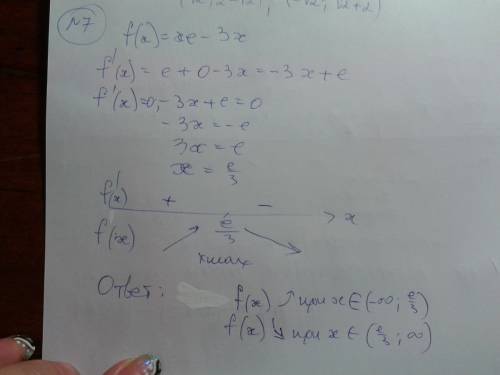 N7
f(x) = xe - 3x
f'(x) = e + 0 - 3x = -3x + e
f'(x)=0, -3x+e=0
-3x=-e
3x = e
x = e/3
f'(x) + - x
f(x) e/3
xmax
Ответ: f(x) ↗ при x∈(-∞; e/3)
f(x) ↘ при x∈(e/3; ∞)